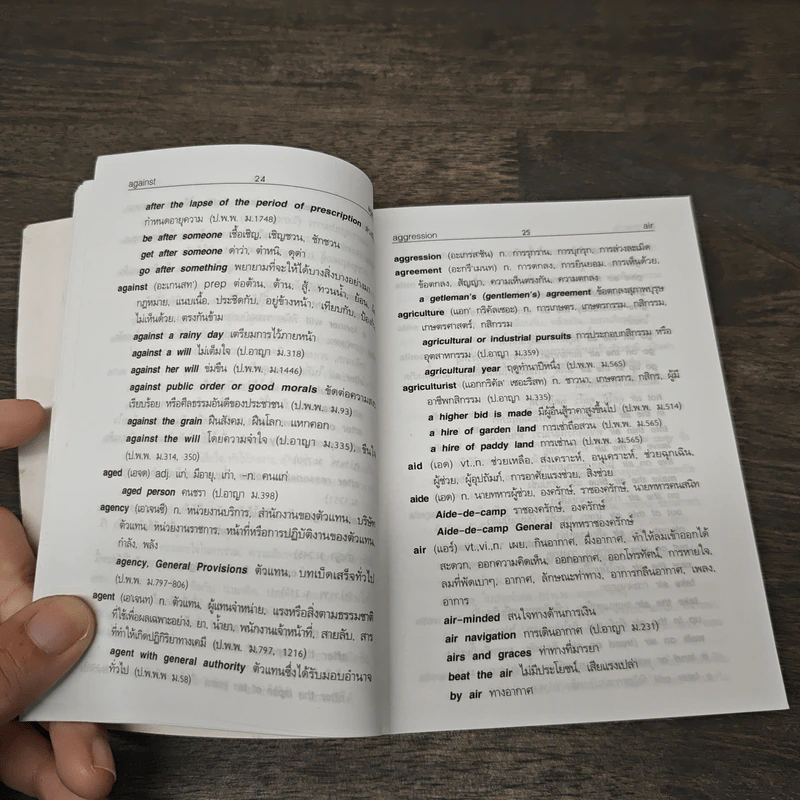 against 24
after the lapse of the period of prescription
กำหนดอายุความ (ป.พ.พ. ม.1748)
be after someone เชื้อเชิญ, เชิญชวน, ชักชวน
get after someone ด่าว่า, ตำหนิ, ดุด่า
go after something พยายามที่จะให้ได้บางสิ่งบางอย่างมา
against (อะเกนสท) prep ต่อต้าน, ต้าน, สู้, ทวนน้ำ, ย้อน,
กฎหมาย, แนบเนื้อ, ประชิดกับ, อยู่ข้างหน้า, เทียบกับ,
ไม่เห็นด้วย, ตรงกันข้าม
against a rainy day เตรียมการไว้ภายหน้า
against a will ไม่เต็มใจ (ป.อาญา ม.318)
against her will ข่มขืน (ป.พ.พ. ม.1446)
against public order or good morals ขัดต่อความสงบ
เรียบร้อย หรือศีลธรรมอันดีของประชาชน (ป.พ.พ. ม.93)
against the grain ฝืนสังคม, ฝืนโลก, แหกคอก
against the will โดยความจำใจ (ป.อาญา ม.335),
(ป.พ.พ. ม.314, 350)
aged (เอจด) adj. แก่, มีอายุ, เก่า, -n. คนแก่
aged person คนชรา (ป.อาญา ม.398)
agency (เอาเจนซี) n. หน่วยงานบริการ, สำนักงานของตัวแทน, บริษัท
ตัวแทน, หน่วยงานราชการ, หน้าที่หรือการปฏิบัติงานของตัวแทน,
กำลัง, พลัง
agency, General Provisions ตัวแทน, บทเบ็ดเสร็จทั่วไป
(ป.พ.พ. ม.797-806)
agent (เอเจนท) n. ตัวแทน, ผู้แทนจำหน่าย, แรงหรือสิ่งตามธรรมชาติ
ที่ใช้เพื่อผลเฉพาะอย่าง, ยา, น้ำยา, พนักงานเจ้าหน้าที่, สายลับ, สาร
ที่ทำให้เกิดปฏิกิริยาทางเคมี (ป.พ.พ. ม.797, 1216)
agent with general authority ตัวแทนซึ่งได้รับมอบอำนาจ
ทั่วไป (ป.พ.พ ม.58)
aggression 25 air
aggression (อะเกรสชัน) n. การรุกราน, การบุกรุก, การล่วงละเมิด
agreement (อะกรีเมนท) n. การตกลง, การยินยอม, การเห็นด้วย,
ข้อตกลง, สัญญา, ความเห็นตรงกัน, ความตกลง
a getleman's (gentlemen's) agreement ข้อตกลงสุภาพบุรุษ
agriculture (แอก' กริคัลเชอะ) n. การเกษตร, เกษตรกรรม, กสิกรรม,
เกษตรศาสตร์, กสิกรรม
agricultural or industrial pursuits การประกอบกสิกรรม หรือ
อุตสาหกรรม (ป.อาญา ม.359)
agricultural year ฤดูทำนาปีหนึ่ง (ป.พ.พ. ม.565)
agriculturist (แอกกริคัล' เชอะริสท) n. ชาวนา, เกษตรกร, กสิกร, ผู้มี
อาชีพกสิกรรม (ป.อาญา ม.335)
a higher bid is made มีผู้อื่นสู้ราคาสูงขึ้นไป (ป.พ.พ. ม.514)
a hire of garden land การเช่าถือสวน (ป.พ.พ. ม.565)
a hire of paddy land การเช่านา (ป.พ.พ. ม.565)
aid (เอด) vt..n. ช่วยเหลือ, สงเคราะห์, อนุเคราะห์, ช่วยฉุกเฉิน,
ผู้ช่วย, ผู้อุปถัมภ์, การอาศัยแรงช่วย, สิ่งช่วย
aide (เอด) n. นายทหารผู้ช่วย, องครักษ์, ราชองครักษ์, นายทหารคนสนิท
Aide-de-camp ราชองครักษ์, องครักษ์
Aide-de-camp General สมุหราชองครักษ์
air (แอร์) vt.,vi.,n. เผย, กินอากาศ, ผึ่งอากาศ, ทำให้ลมเข้าออกได้
สะดวก, ออกความคิดเห็น, ออกอากาศ, ออกโทรทัศน์, การหายใจ,
ลมที่พัดเบาๆ, อากาศ, ลักษณะท่าทาง, อาการกลืนอากาศ, เพลง,
อาการ
air-minded สนใจทางด้านการเงิน
air navigation การเดินอากาศ (ป.อาญา ม.231)
airs and graces ท่าทางที่มารยา
beat the air ไม่มีประโยชน์, เสียแรงเปล่า
by air ทางอากาศ